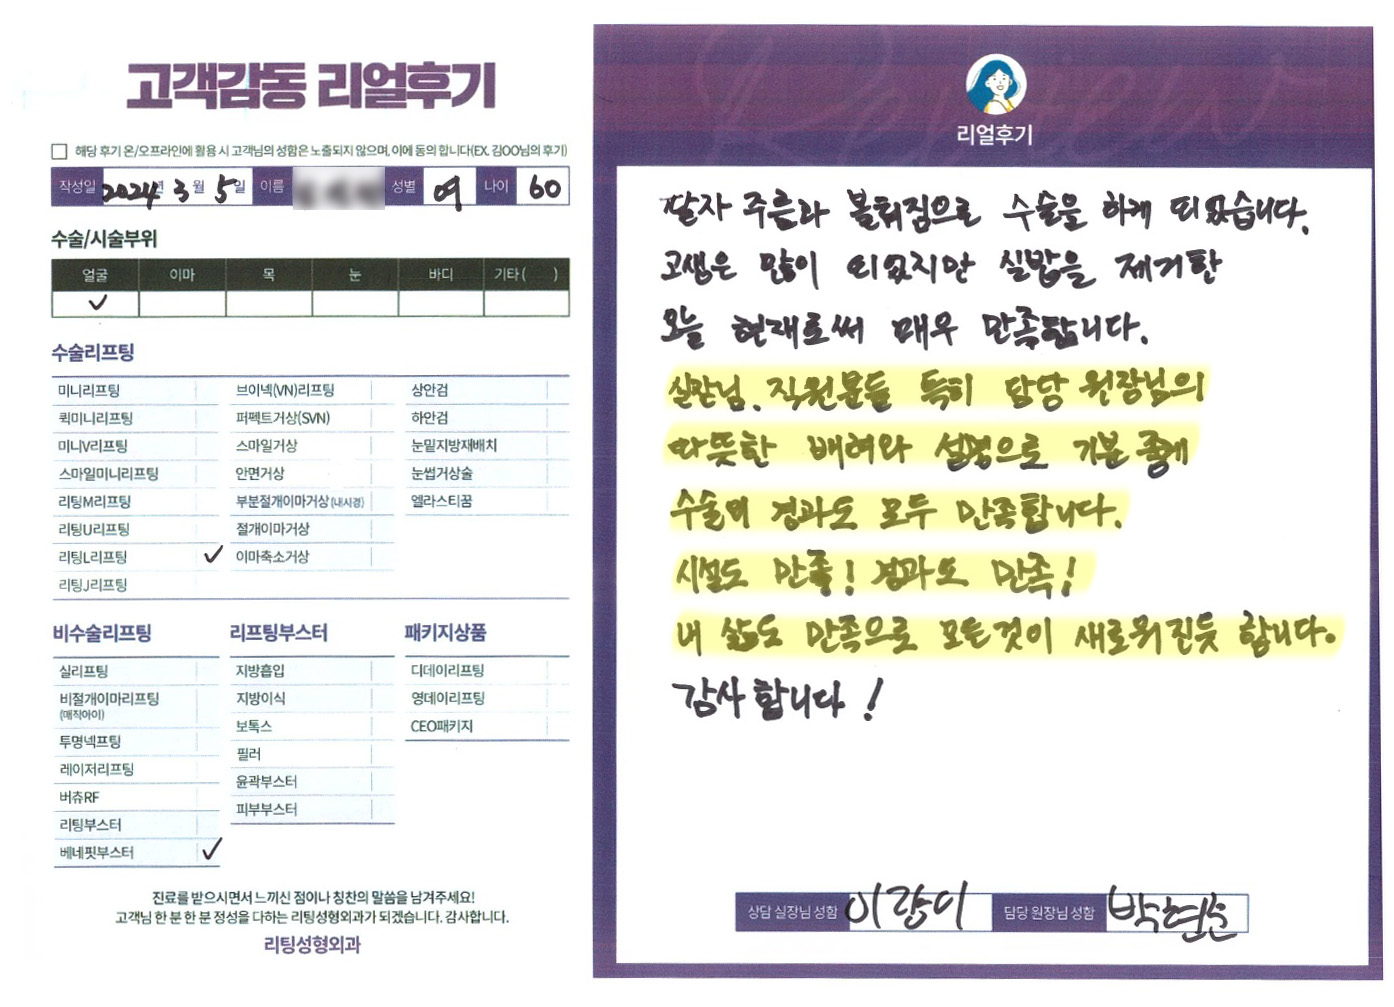 고객감동 리얼후기
해당 후기 온/오프라인에 활용 시 고객님의 성함은 노출되지 않으며, 이에 동의 합니다(EX. 김OO님의 후기)
작성일 2024년 3월 5일 이름 성별 여 나이 60
수술/시술부위
얼굴 이마 목 눈 바디 기타 ( )
✓
수술리프팅
미니리프팅
퀵미니리프팅
미니V리프팅
스마일미니리프팅
리팅M리프팅
리팅U리프팅
리팅L리프팅 ✓
리팅J리프팅
브이넥(VN)리프팅
퍼펙트거상(SVN)
스마일거상
안면거상
부분절개이마거상(내시경)
절개이마거상
이마축소거상
상안검
하안검
눈밑지방재배치
눈썹거상술
엘라스티꿈
비수술리프팅
실리프팅
비절개이마리프팅
(매직아이)
투명넥프팅
레이저리프팅
버츄RF
리팅부스터
베네핏부스터 ✓
리프팅부스터
지방흡입
지방이식
보톡스
필러
윤곽부스터
피부부스터
패키지상품
디데이리프팅
영데이리프팅
CEO패키지
진료를 받으시면서 느끼신 점이나 칭찬의 말씀을 남겨주세요!
고객님 한 분 한 분 정성을 다하는 리팅성형외과가 되겠습니다. 감사합니다.
리팅성형외과
Review
리얼후기
팔자 주름과 볼쳐짐으로 수술을 하게 되었습니다.
고생은 많이 되었지만 실밥을 제거한
오늘 현재로써 매우 만족합니다.
실장님, 직원분들 특히 담당 원장님의
따뜻한 배려와 설명으로 기분 좋게
수술의 경과도 모두 만족합니다.
시설도 만족! 경과도 만족!
내 삶도 만족으로 모든것이 새로워진듯 합니다.
감사합니다!
상담 실장님 성함 담당 원장님 성함 박현순